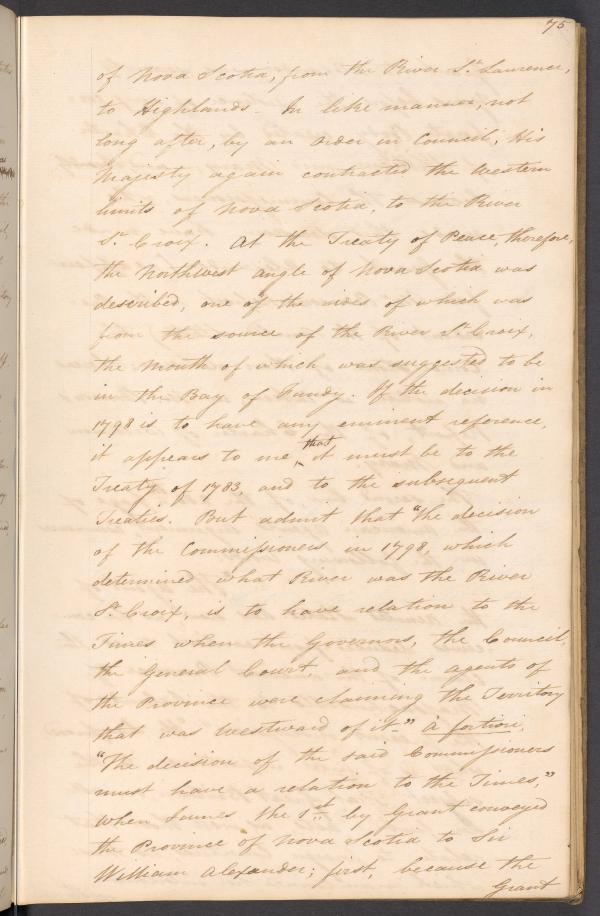 75
of Nova Scotia, from the River St. Laurence,
to Highlands - In like manner, not
long after, by an order in Council, His
Majesty again contracted the Western
limits of Nova Scotia, to the River
St. Croix. At the Treaty of Peace, therefore,
the Northwest angle of Nova Scotia was
described, one of the sides of which was
from the source of the River St. Croix,
the mouth of which was suggested to be
in the Bay of Fundy. If the decision in
1798 is to have any eminent reference,
it appears to me, that it must be to the
Treaty of 1783, and to the subsequent
Treaties. But admit that "the decision
of the Commissioners in 1798, which
determined what River was the River
St. Croix, is to have relation to the
Times when the Governors, the Council,
the General Court, and the agents of
the Province were claiming the Territory
that was Westward of it-" à fortiori,
"The decision of the said Commissioners
must have a relation to the Times,"
when James the 1st. by Grant conveyed
the Province of Nova Scotia to Sir
William Alexander; first, because the
Grant